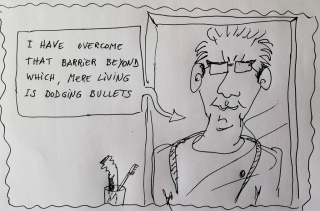 I HAVE OVERCOME
THAT BARRIER BEYOND
WHICH, MERE LIVING
IS DODGING BULLETS